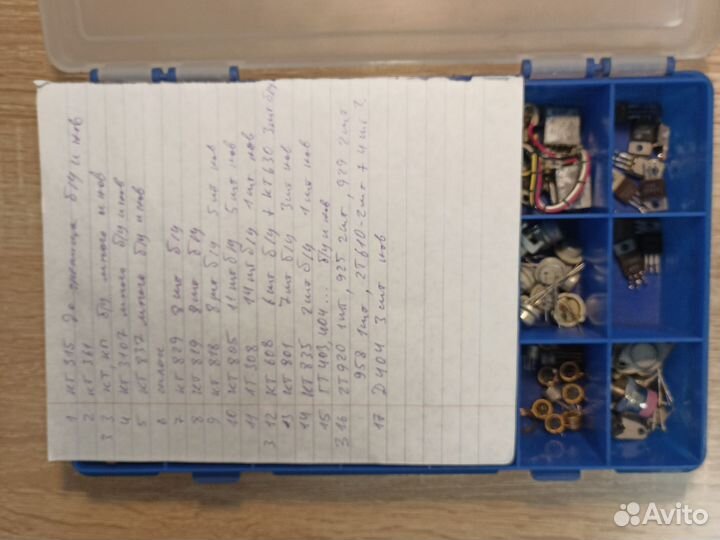 1 КТ 315 до б/у и нов
2 КТ 361
3 3 КТ, КП б/у много и нов
4 КТ 3107 много б/у и нов
5 КТ 837 много б/у и нов
6
7 КТ 829 8 шт б/у
8 КТ 819 8 шт б/у
9 КТ 818 8 шт б/у 5 шт нов
10 КТ 805 11 шт б/у 5 шт нов
11 308 14 шт б/у 1 шт нов
3 12 КТ 608 6 шт б/у + КТ630 3 шт б/у
13 КТ 801 7 шт б/у 3 шт нов
14 КТ 835 2 шт б/у 1 шт нов
15 ГТ 403, 404... б/у и нов
3 16 2Т920 1 шт, 925 2 шт, 929 2 шт
958 1 шт, 2Т610-2 шт + 4 шт?
17 Д404 3 шт нов
Avito